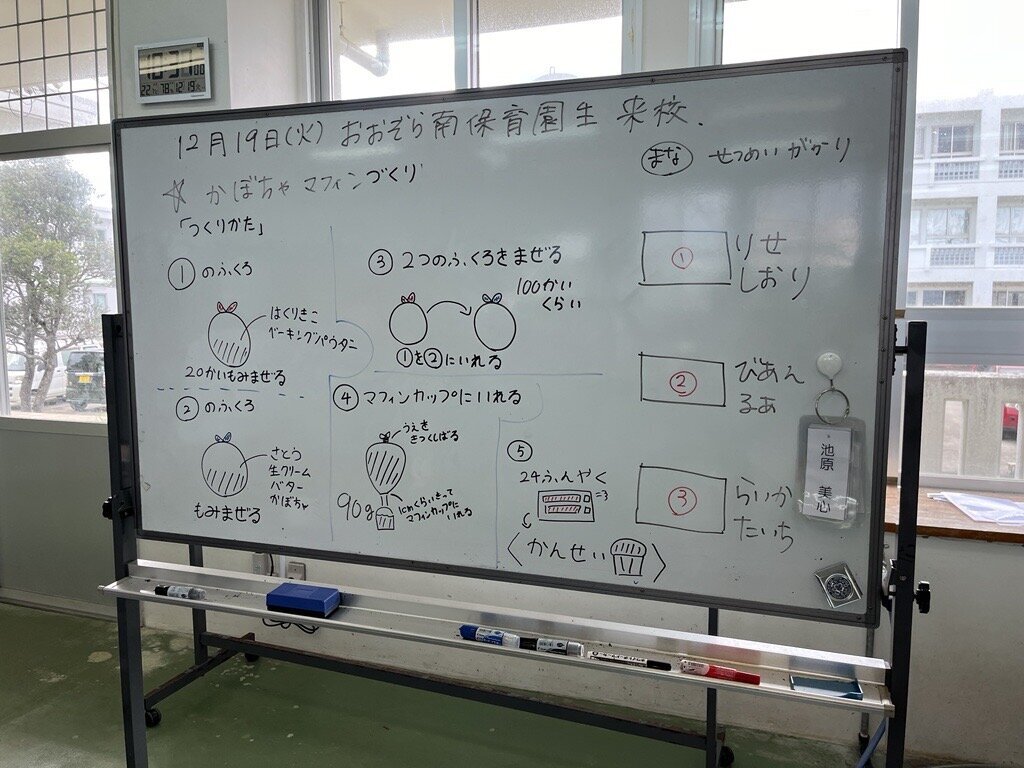 12月19日(火) おおぞら南保育園生 来校.
☆ かぼちゃマフィンづくり
「つくりかた」
①のふくろ
はくりきこ
ベーキングパウダー
20かいもみまぜる
②のふくろ
さとう
生クリーム
バター
かぼちゃ
もみまぜる
③ 2つのふくろをまぜる
100かい
くらい
①を②にいれる
④ マフィンカップにいれる
うえを
きつくしばる
90g
1cmくらいきって
マフィンカップに
いれる
⑤
24ふんやく
〈かんせい 〉
まな せつめいがかり
① りせ
しおり
② びあん
るあ
③ らいか
たいち
池原 美心
10:31 00
12.19